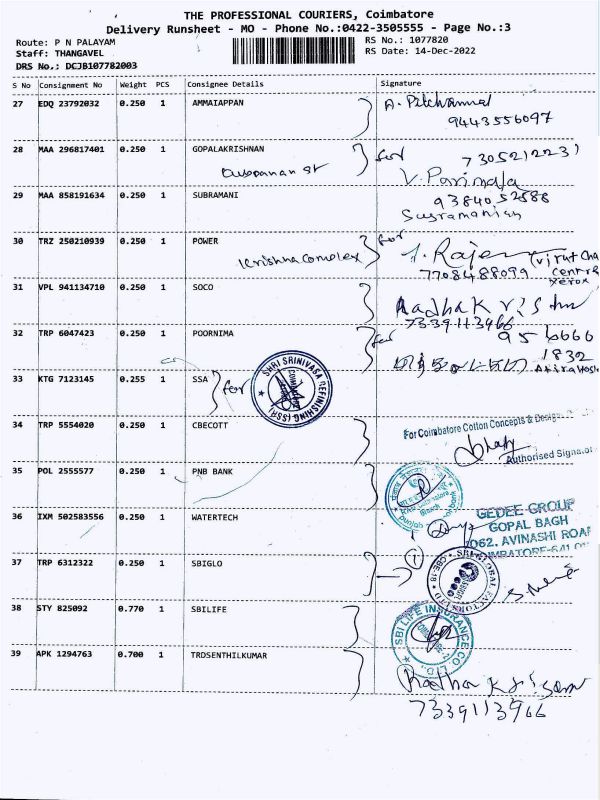 THE PROFESSIONAL COURIERS, Coimbatore
Delivery Runsheet - MO - Phone No.:0422-3505555 - Page No.:3
Route: P N PALAYAM
Staff: THANGAVEL
DRS No.: DCJB107782003
RS No.: 1077820
RS Date: 14-Dec-2022
S No Consignment No Weight PCS Consignee Details Signature
27 EDQ 23792032 0.250 1 AMMAIAPPAN
9443556097
28 MAA 296817401 0.250 1 GOPALAKRISHNAN for
7305212231
29 MAA 858191634 0.250 1 SUBRAMANI
V. Parimala
9384052588
30 TRZ 250210939 0.250 1 POWER for
Krishna complex
7708488099
Xerox
31 VPL 941134710 0.250 1 SOCO
7339113966
32 TRP 6047423 0.250 1 POORNIMA for
956666
1832
33 KTG 7123145 0.255 1 SSA for
SHRI SRINIVASA REFINISHING (SSI)
34 TRP 5554020 0.250 1 CBECOTT
For Coimbatore Cotton Concepts &
Authorised
35 POL 2555577 0.250 1 PNB BANK
36 IXM 502583556 0.250 1 WATERTECH
GEDEE GROUP
GOPAL BAGH
1062. AVINASHI ROAD
37 TRP 6312322 0.250 1 SBIGLO
38 STY 825092 0.770 1 SBILIFE
SBI LIFE INSURANCE CO. LTD.
39 APK 1294763 0.700 1 TRDSENTHILKUMAR
7339113966